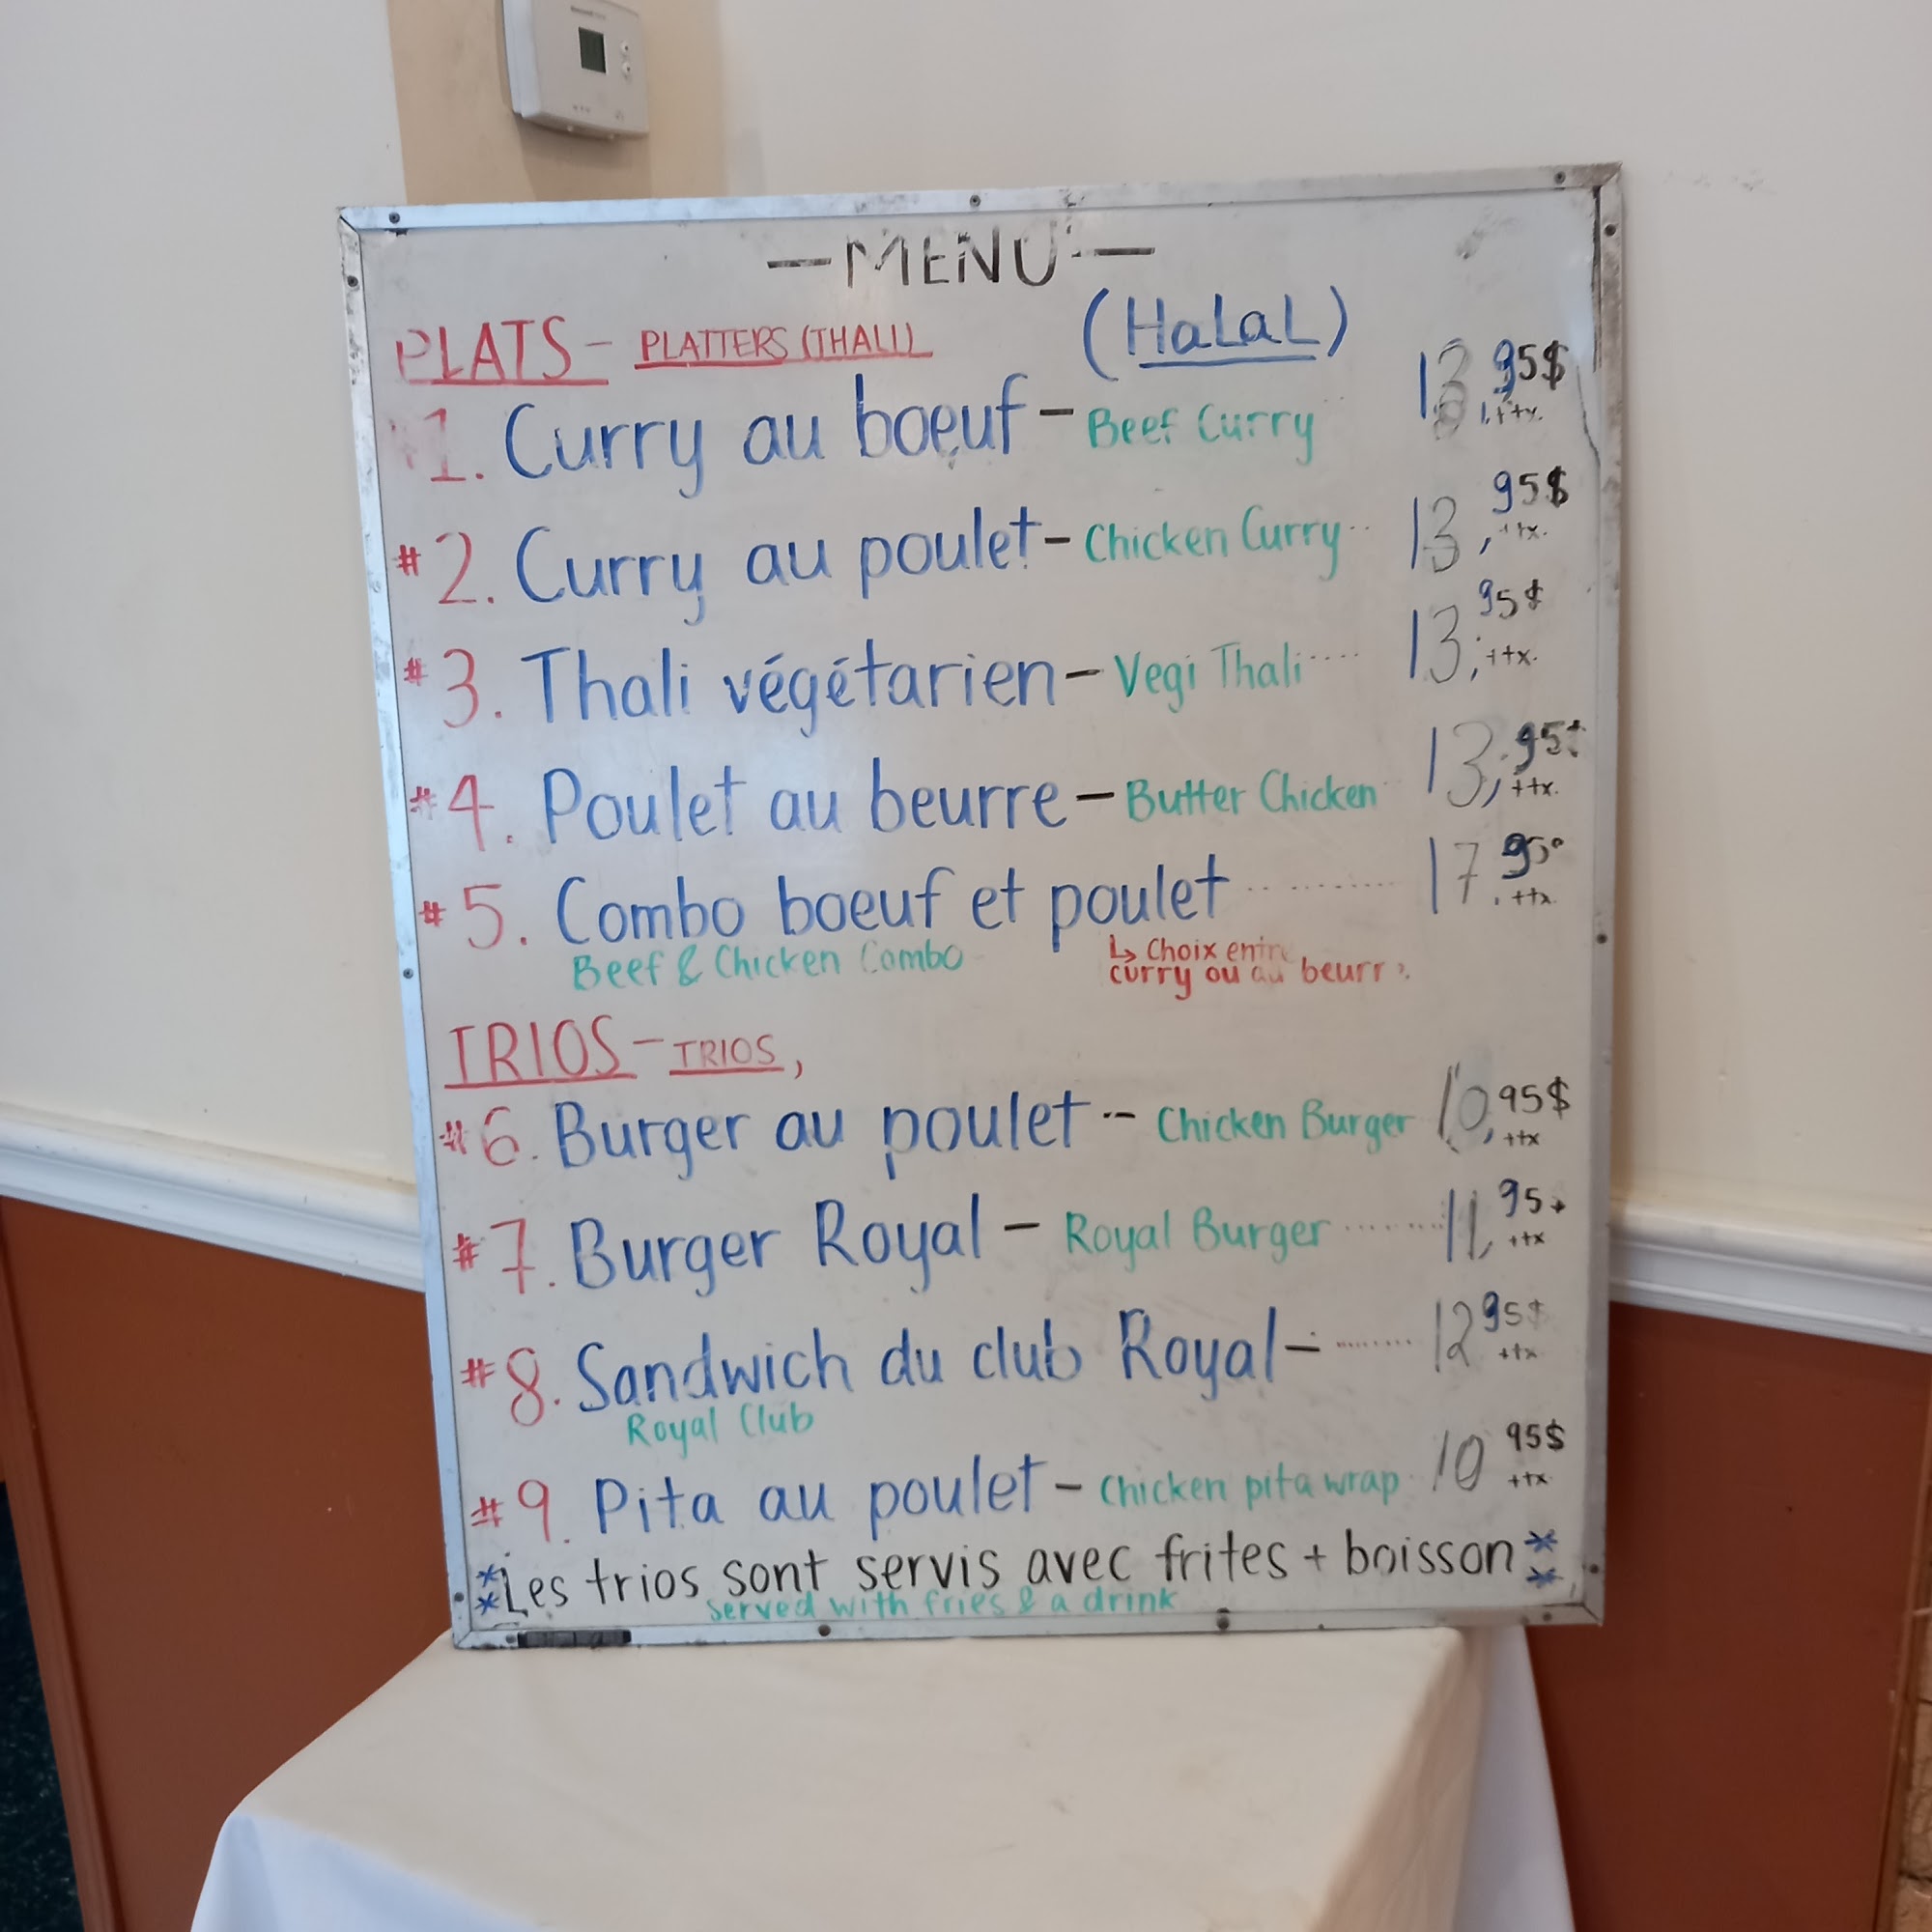 —MENU—
PLATS - PLATTERS (THALI) (HaLaL)
1. Curry au boeuf - Beef Curry 13,95$ + tx.
#2. Curry au poulet - Chicken Curry.. 13,95$ + tx.
#3. Thali végétarien - Vegi Thali.... 13,95$ + tx.
#4. Poulet au beurre - Butter Chicken 13,95$ + tx.
#5. Combo boeuf et poulet .......... 17.95 + tx.
Beef & Chicken Combo ↳ Choix entre
curry ou au beurre.
TRIOS - TRIOS,
#6. Burger au poulet -- Chicken Burger 10,95$ + tx
#7. Burger Royal - Royal Burger ........ 11,95 + tx
#8. Sandwich du club Royal - ........ 12 95$ + tx
Royal Club
#9. Pita au poulet - Chicken pita wrap 10 95$ + tx
**Les trios sont servis avec frites + boisson**
served with fries & a drink